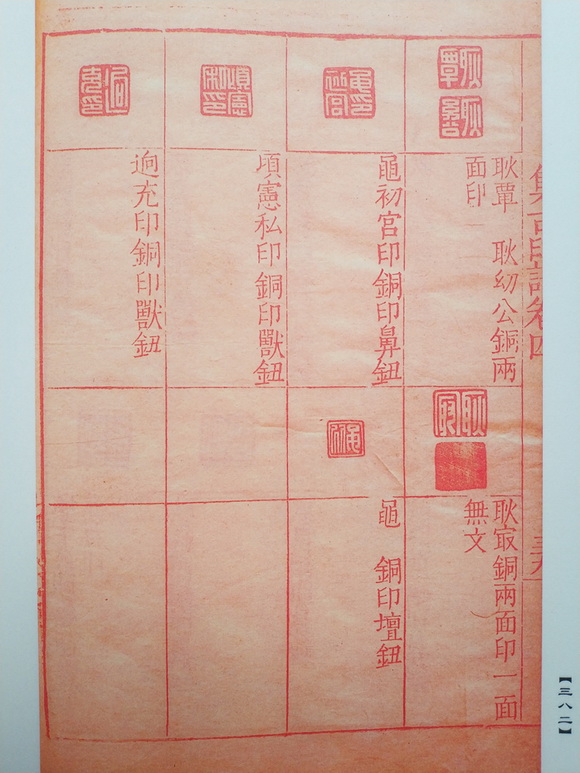 集古印譜卷四
耿覃 耿㓜公銅兩
面印
黽初宮印銅印鼻鈕
頃憲私印銅印獸鈕
逈充印銅印獸鈕
耿㝡銅兩面印一面
無文
黽 銅印壇鈕
【三八二】